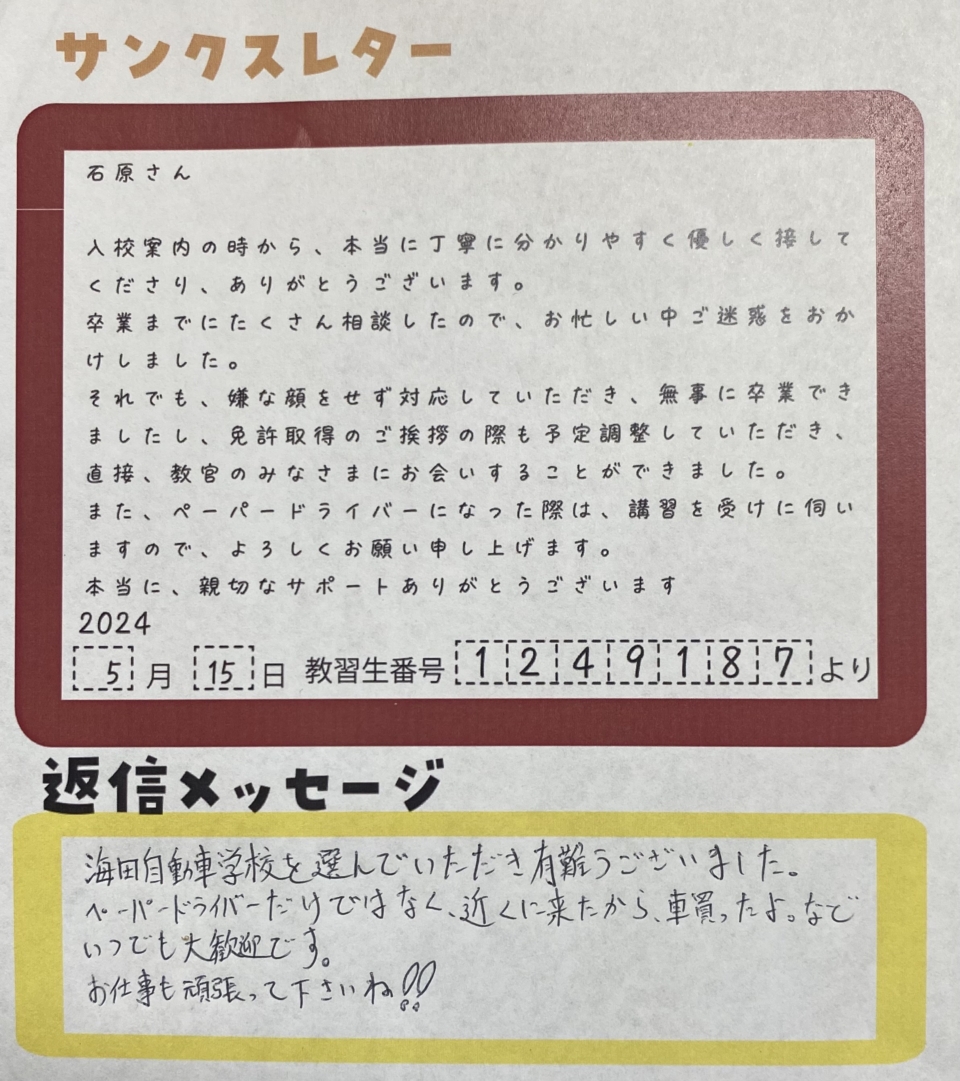 サンクスレター
石原さん
入校案内の時から、本当に丁寧に分かりやすく優しく接して
くださり、ありがとうございます。
卒業までにたくさん相談したので、お忙しい中ご迷惑をおか
けしました。
それでも、嫌な顔をせず対応していただき、無事に卒業でき
ましたし、免許取得のご挨拶の際も予定調整していただき、
直接、教官のみなさまにお会いすることができました。
また、ペーパードライバーになった際は、講習を受けに伺い
ますので、よろしくお願い申し上げます。
本当に、親切なサポートありがとうございます
2024
5月 15日 教習生番号 1249187より
返信メッセージ
海田自動車学校を選んでいただき有難うございました。
ペーパードライバーだけではなく、近くに来たから、車買ったよ。など
いつでも大歓迎です。
お仕事も頑張って下さいね!!